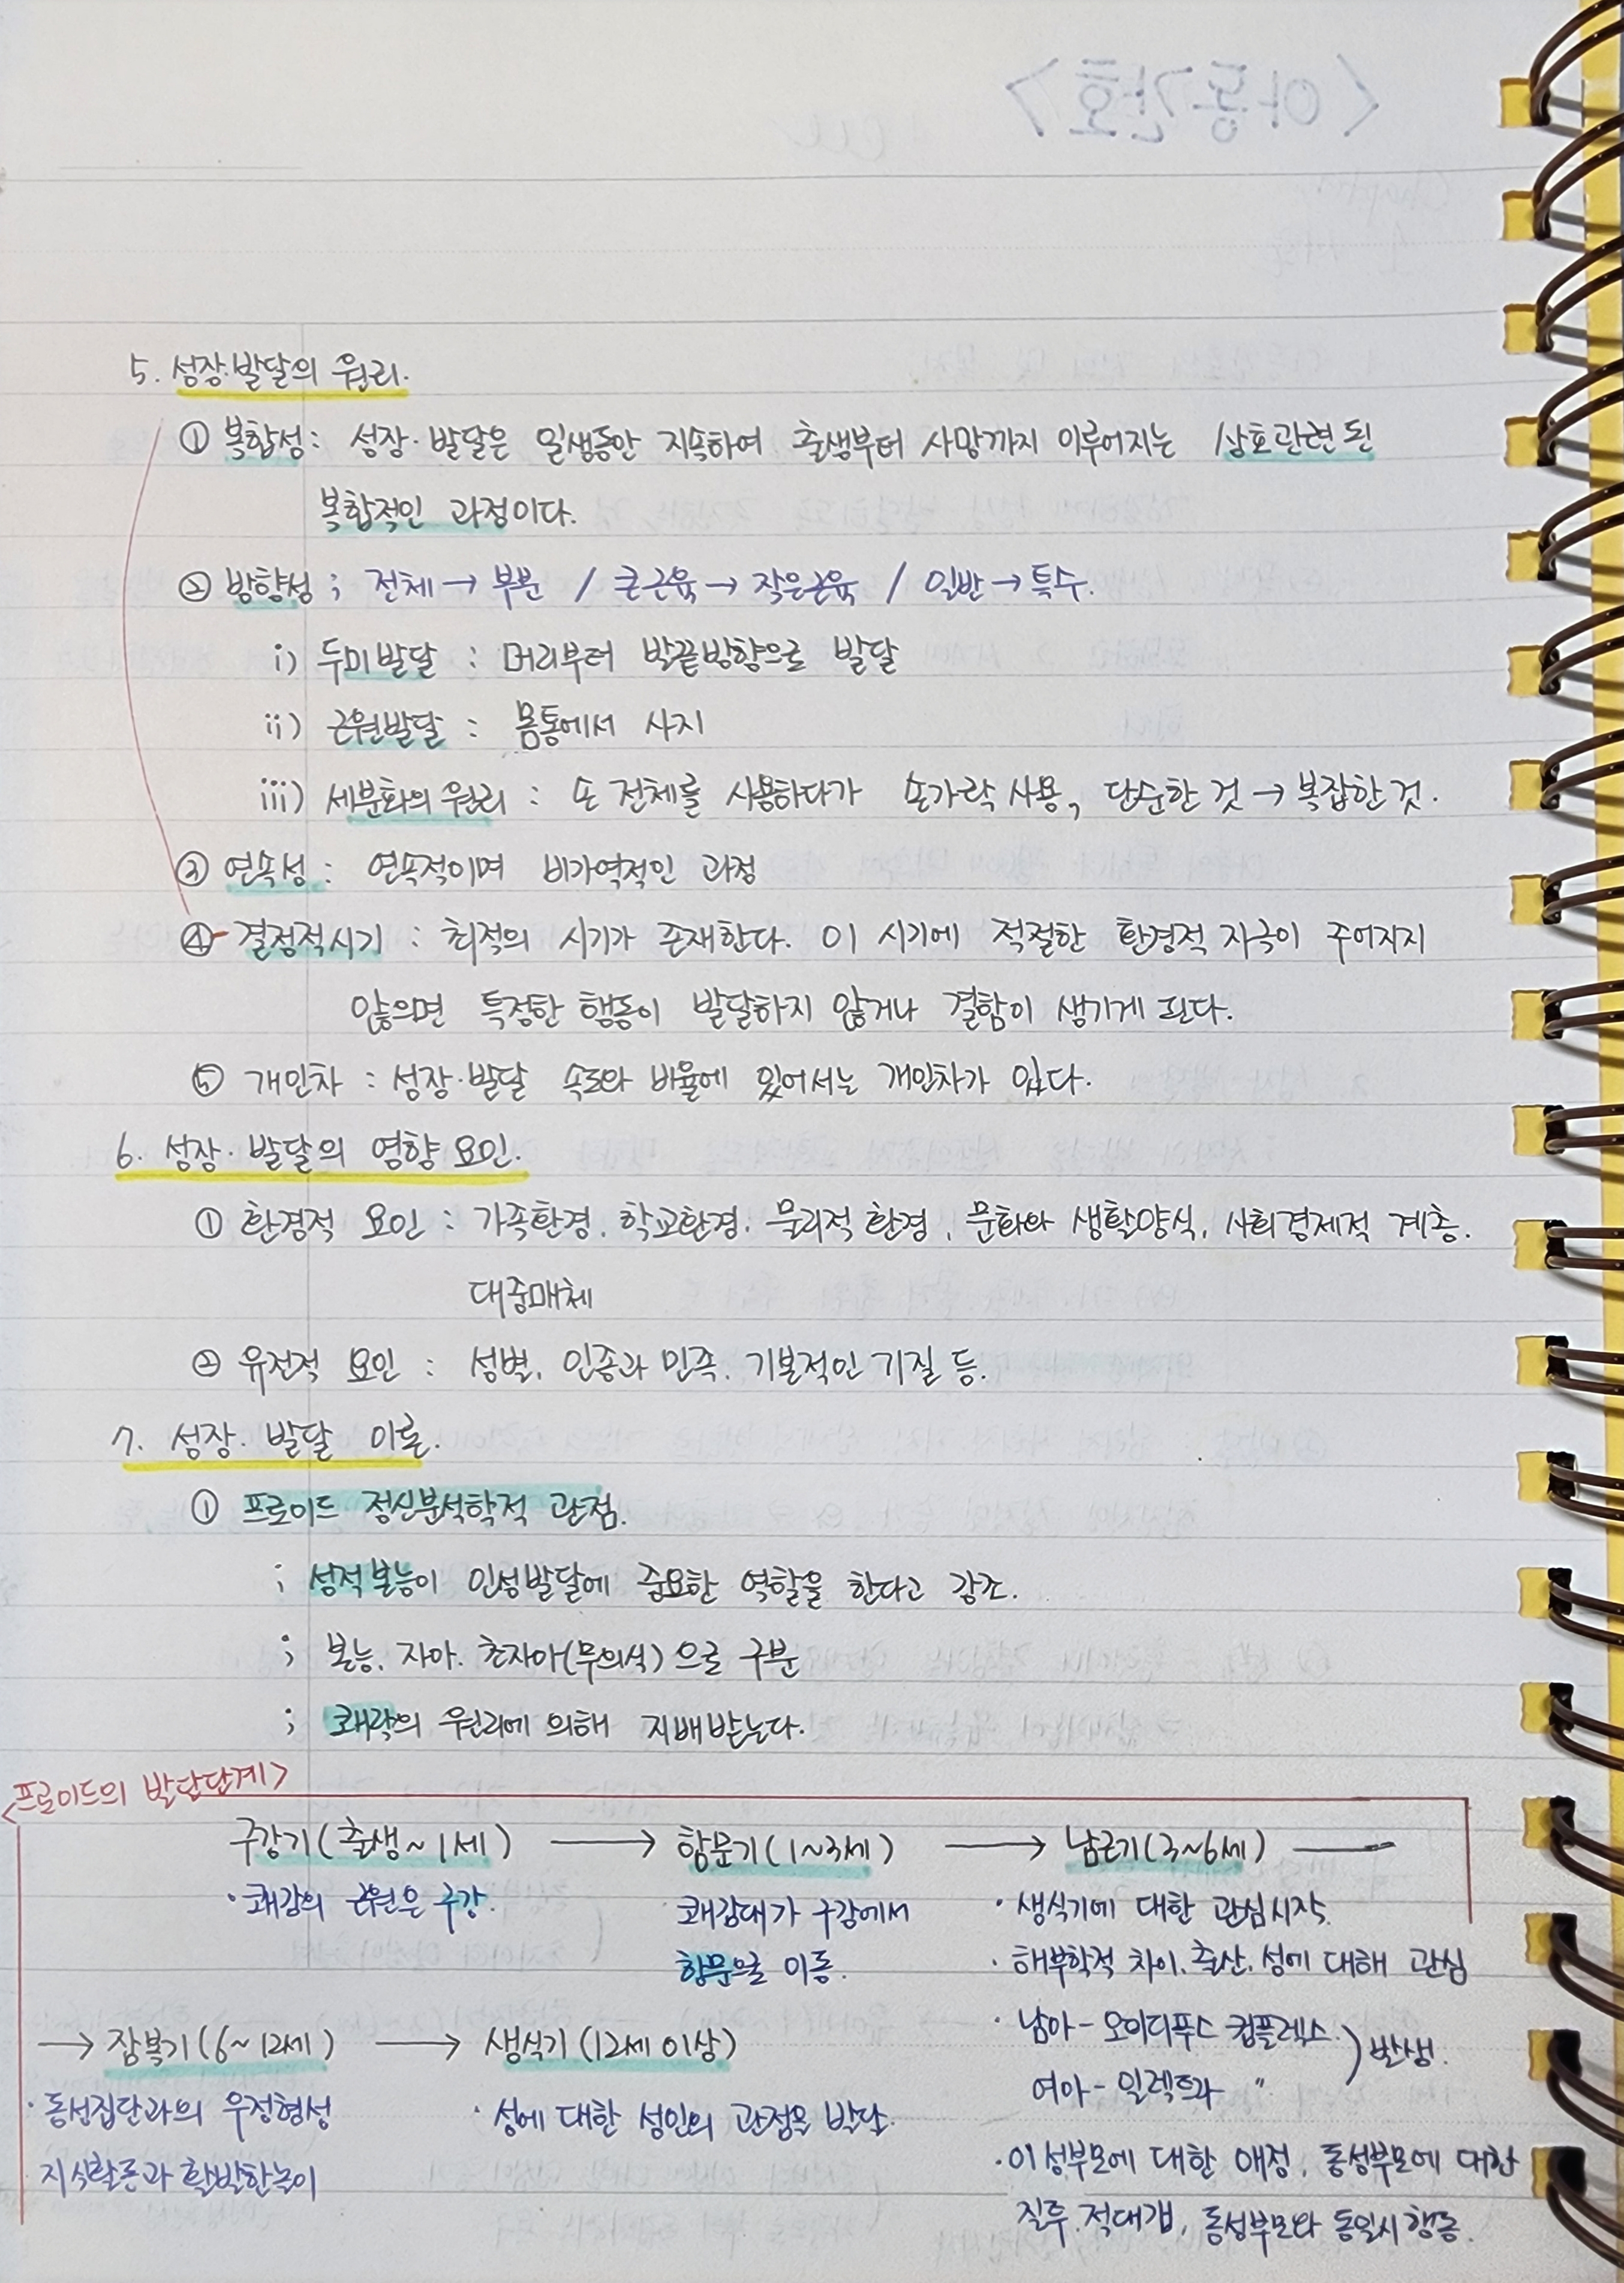 5. 성장·발달의 원리.
① 복합성: 성장·발달은 일생동안 지속하여 출생부터 사망까지 이루어지는 상호관련된
복합적인 과정이다.
② 방향성 ; 전체 → 부분 / 큰근육 → 작은근육 / 일반 → 특수.
i) 두미발달 : 머리부터 발끝방향으로 발달
ii) 근원발달 : 몸통에서 사지
iii) 세분화의 원리 : 손 전체를 사용하다가 손가락 사용, 단순한 것 → 복잡한 것.
③ 연속성 : 연속적이며 비가역적인 과정
④ 결정적시기 : 최적의 시기가 존재한다. 이 시기에 적절한 환경적 자극이 주어지지
않으면 특정한 행동이 발달하지 않거나 결함이 생기게 된다.
⑤ 개인차 : 성장·발달 속도와 비율에 있어서는 개인차가 있다.
6. 성장·발달의 영향 요인.
① 환경적 요인 : 가족환경. 학교환경. 물리적 환경, 문화와 생활양식, 사회경제적 계층.
대중매체
② 유전적 요인 : 성별, 인종과 민족. 기본적인 기질 등.
7. 성장·발달 이론.
① 프로이드 정신분석학적 관점.
; 성적본능이 인성발달에 중요한 역할을 한다고 강조.
; 본능. 자아. 초자아(무의식)으로 구분
; 쾌락의 원리에 의해 지배받는다.
<프로이드의 발달단계>
구강기(출생~1세) → 항문기(1~3세) → 남근기(3~6세)
· 쾌감의 근원은 구강.
쾌감대가 구강에서
항문으로 이동.
· 생식기에 대한 관심시작.
· 해부학적 차이. 출산. 성에 대해 관심
· 남아 - 오이디푸스 컴플렉스.
여아 - 일렉트라 〃
) 발생.
· 이성부모에 대한 애정, 동성부모에 대한
질투. 적대감, 동성부모와 동일시행동.
→ 잠복기(6~12세) → 생식기(12세 이상)
· 동성집단과의 우정형성
지식활동과 활발한놀이
· 성에 대한 성인의 관점을 발달.